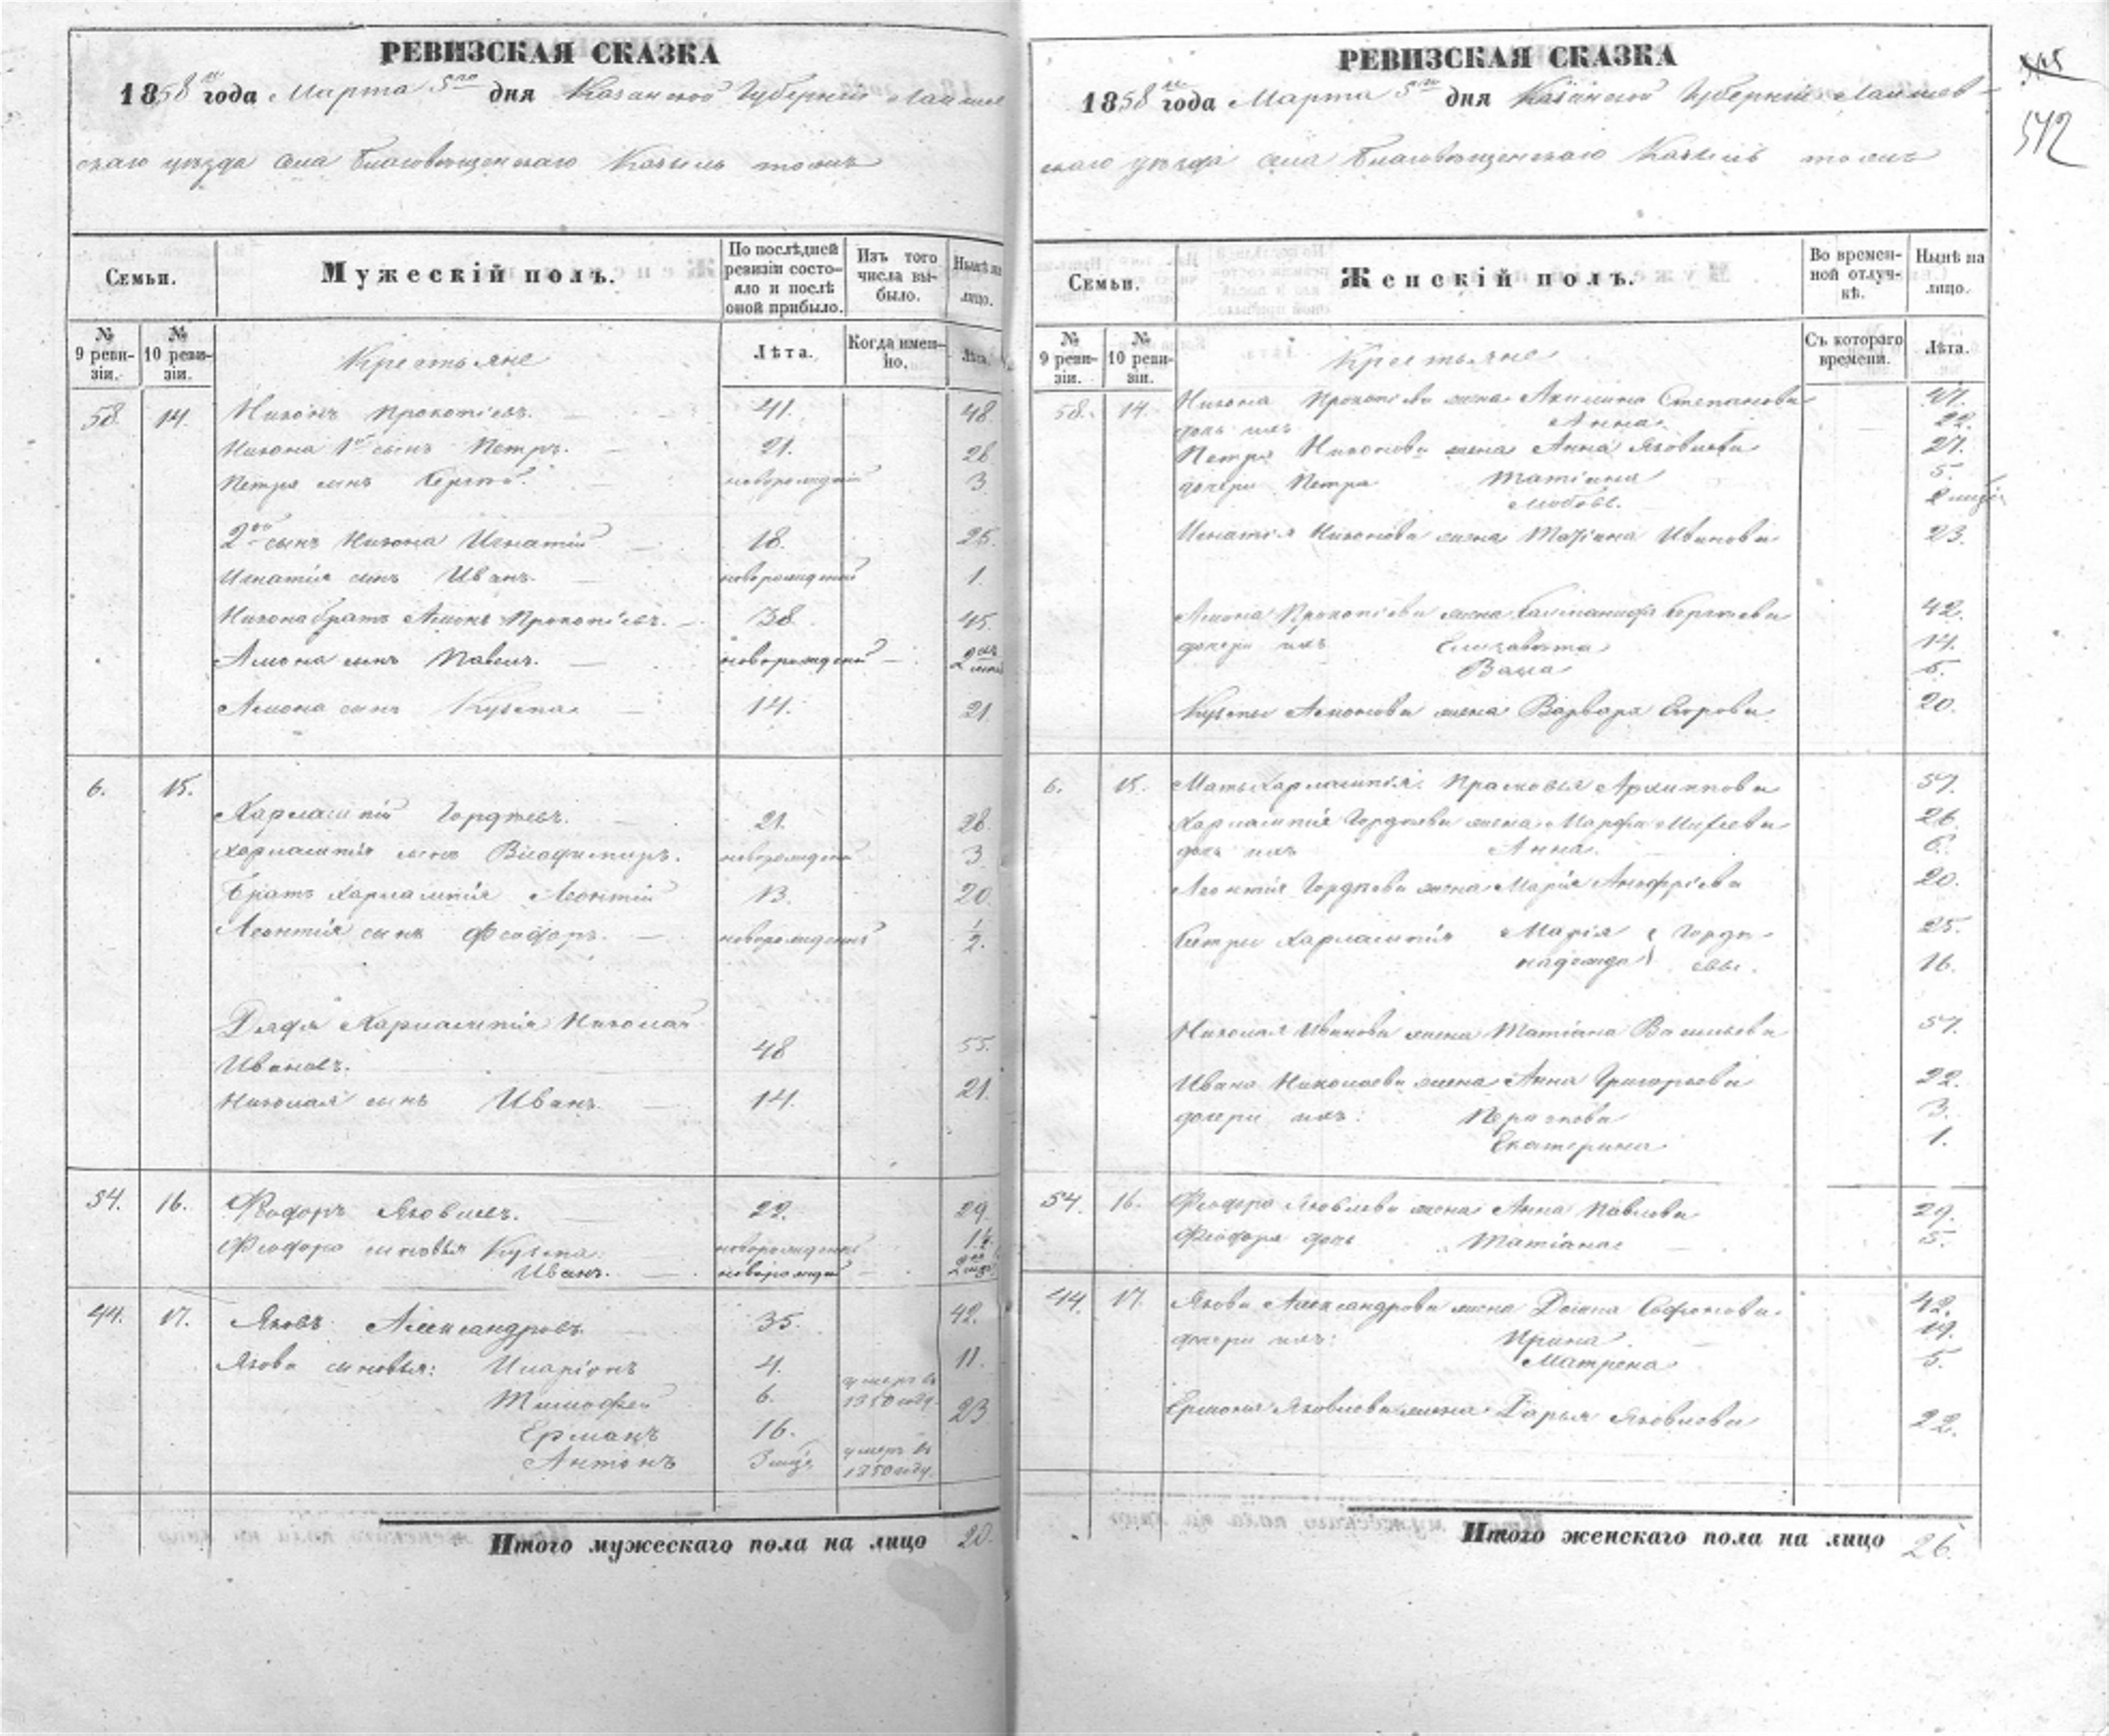 РЕВИЗСКАЯ СКАЗКА
1858 года Марта 5го дня Казанской Губерніи Лаишев
скаго уѣзда села Благовѣщенскаго
Семьи.
Мужескій полъ.
По послѣдней ревизіи состо-яло и послѣ оной прибыло.
Изъ того числа вы-было.
Нынѣ на лицо.
№ 9 реви-зіи.
№ 10 реви-зіи.
Крестьяне
Лѣта.
Когда имен-но.
Лѣта.
58 14. Никонъ Прокопіевъ. 41. 48
Никона 1й сынъ Петръ. 21. 28
Петра сынъ новорожденный 3
2ой сынъ Никона Игнатій 18. 25.
Игнатія сынъ Иванъ новорожденный 1.
Никона братъ Прокопіевъ. 38. 45.
сынъ Павелъ. новорожденный 2
сынъ Кузьма 14. 21
6. 15.
Харлампій Гордѣевъ. 21. 28.
Харлампія сынъ Владимиръ. новорожденный 3
Братъ Харлампія Леонтій 13. 20
Леонтія сынъ Феодоръ. новорожденный 1/2.
Дядя Харлампія Николай
Ивановъ. 48 55.
Николая сынъ Иванъ. 14. 21.
54. 16. Феодоръ Яковлевъ. 22. 29.
Феодора сыновья Кузьма новорожденный
Иванъ. новорожден
44. 17. Яковъ Александровъ 35. 42.
Якова сыновья: Иларіонъ 4. 11.
Тимофей 6. умеръ въ 1850 году.
Ерманъ 16. 23
Антонъ 3 умеръ въ 1850 году.
Итого мужескаго пола на лицо 20.
РЕВИЗСКАЯ СКАЗКА
1858 года Марта 5го дня Казанской Губерніи Лаишев-
скаго уѣзда села Благовѣщенскаго
572
Семьи.
Женскій полъ.
Во времен-ной отлуч-кѣ.
Нынѣ на лицо.
№ 9 реви-зіи.
№ 10 реви-зіи.
Крестьяне
Съ котораго времени.
Лѣта.
58. 14. Никона Прокопіева жена Акилина Степанова 47.
дочь ихъ Анна 22.
Петра Никонова жена Анна Яковлева 27.
дочери Петра Татіана 5.
Любовь. 2
Игнатія Никонова жена Татіана Иванова 23.
Прокопіева жена 42.
дочери ихъ Елизавета 14.
5.
Кузьмы жена Варвара Егорова 20.
6. 15. Мать Харлампія Прасковья Архиппова 57.
Харлампія Гордѣева жена Марфа 26.
дочь ихъ Анна. 6.
Леонтія Гордѣева жена Марія 20.
Сестры Харлампія Марія Гордѣ- 25.
Надежда евы. 16.
Николая Иванова жена Татіана Васильева 57.
Ивана Николаева жена Анна Григорьева 22.
дочери ихъ: 3.
Екатерина 1.
54. 16. Феодора Яковлева жена Анна Павлова 29.
Феодора дочь Татіана 5.
44. 17. Якова Александрова жена Софонова 42.
дочери ихъ: Ирина 19.
Матрена 5.
Ермана Яковлева жена Дарья Яковлева 22.
Итого женскаго пола на лицо 26.